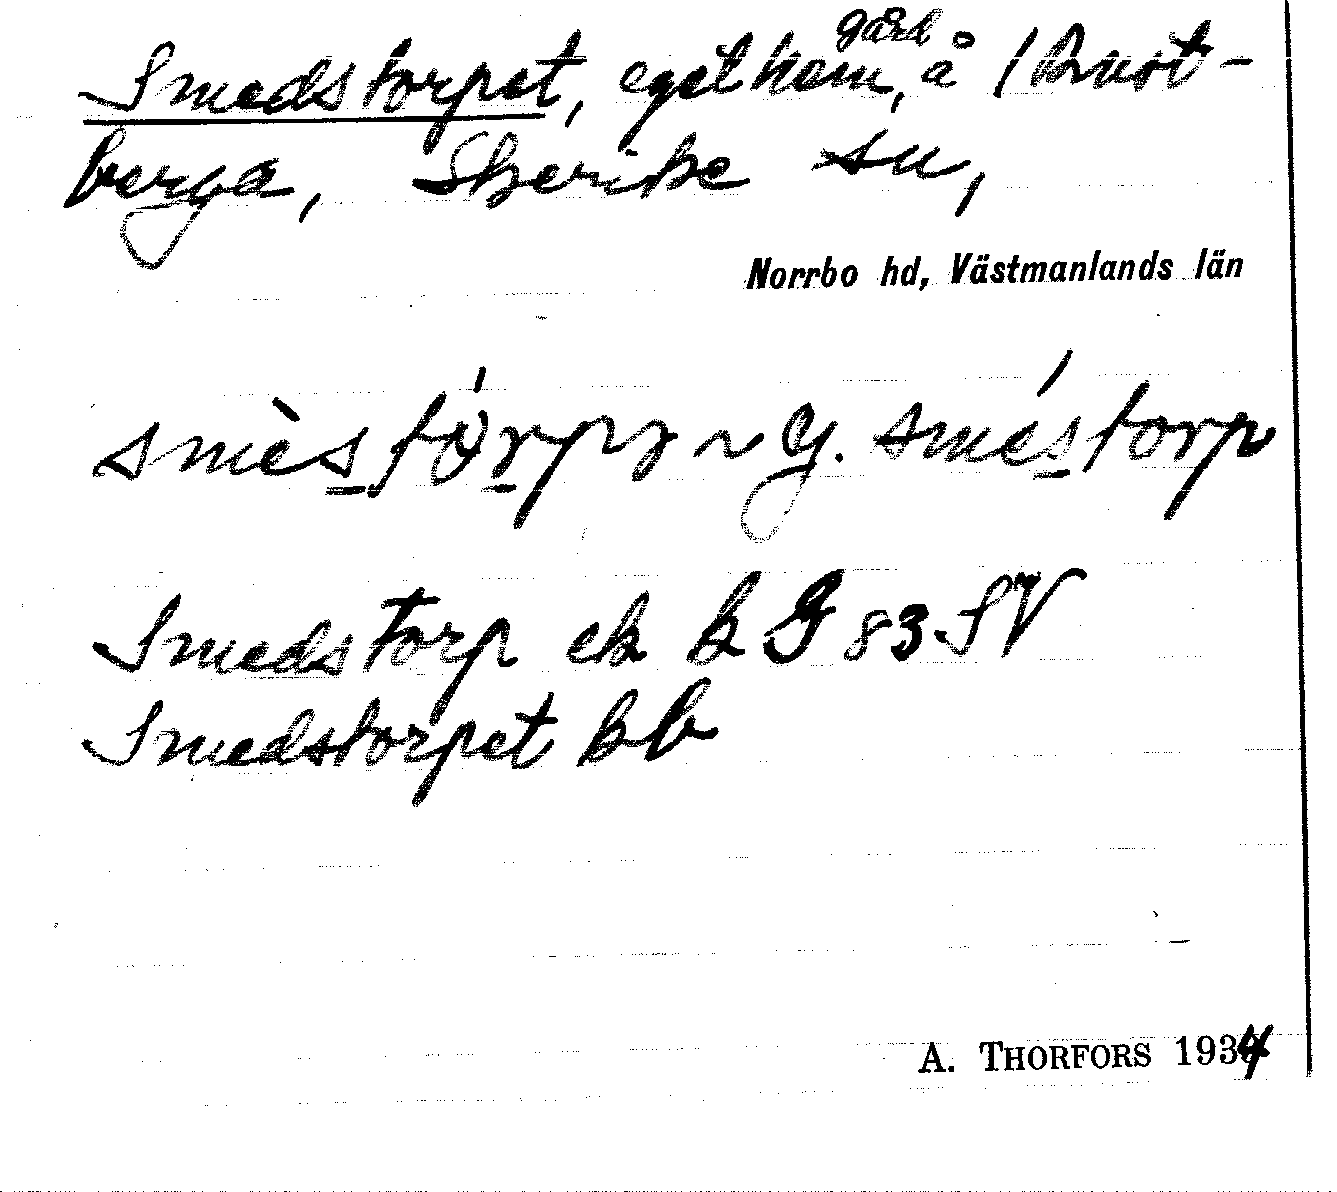 Smedstorpet, egethem, gård å / Rust-
berga, Skerike sn,
Norrbo hd, Västmanlands län
Smedstorp ek k G 83 SV
Smedstorpet bb
A. THORFORS 1934